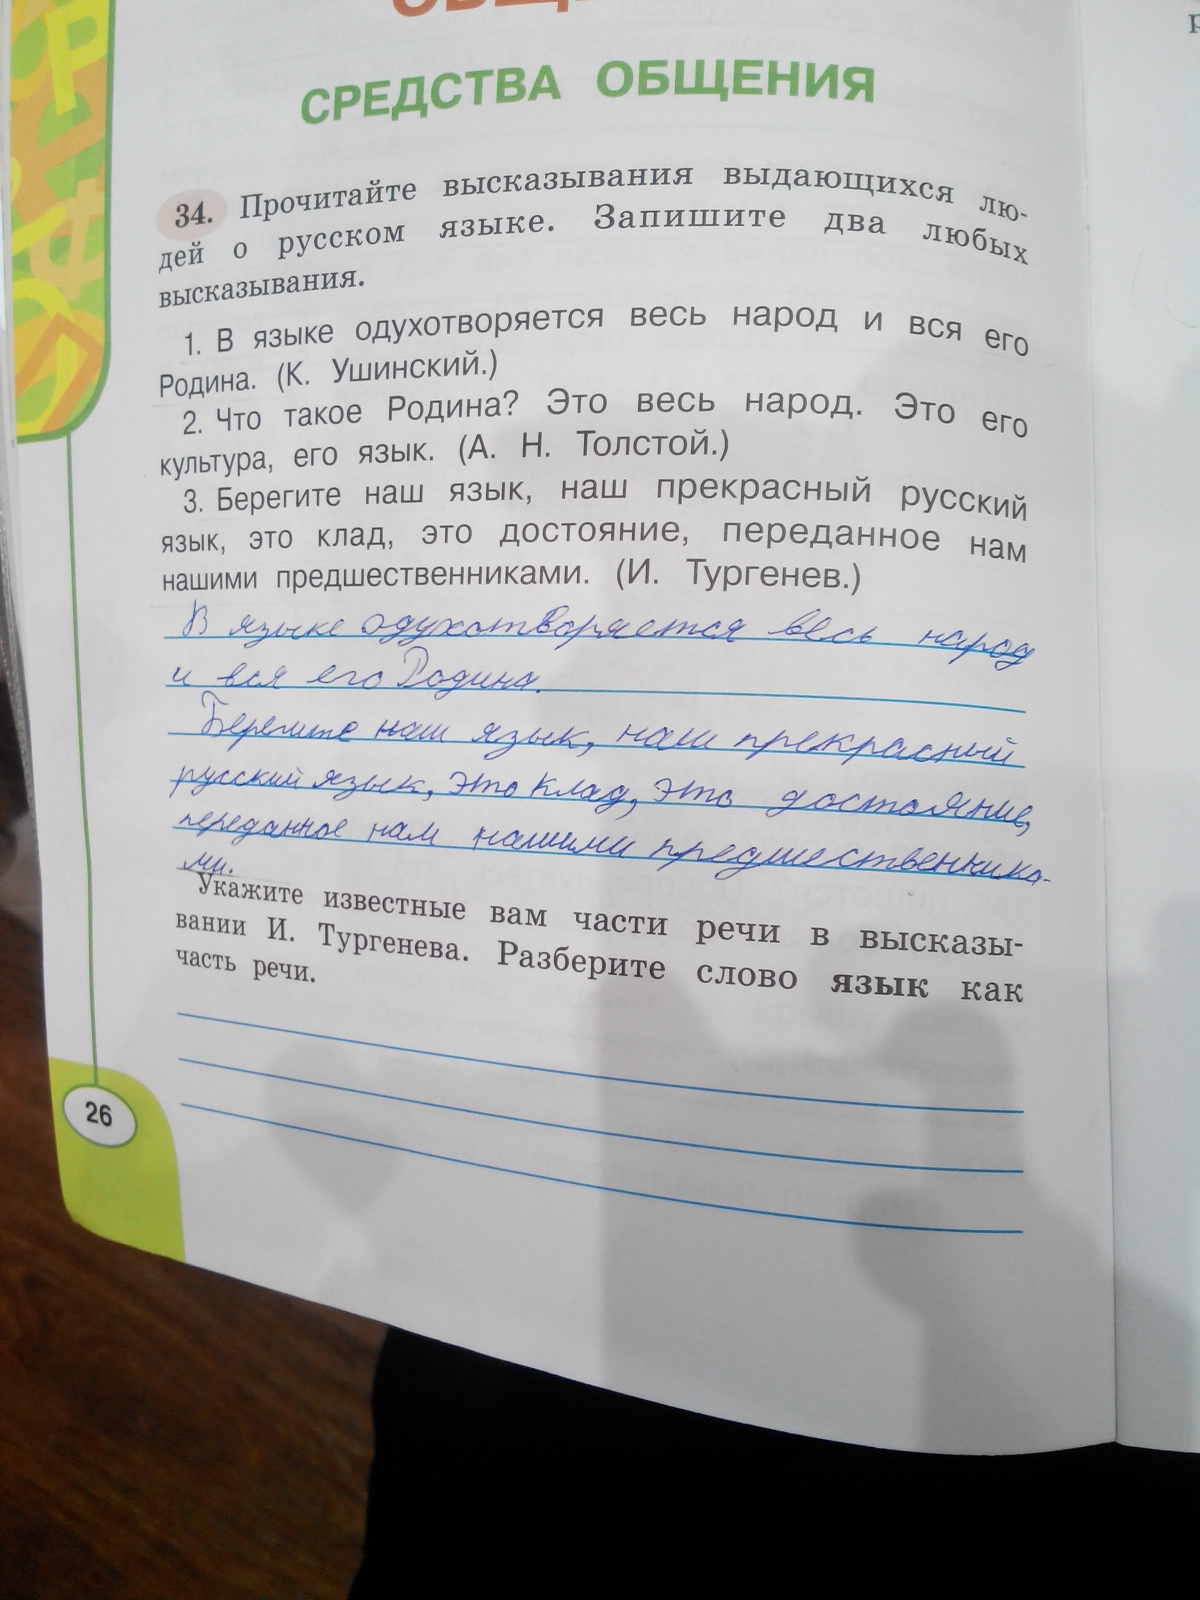 СРЕДСТВА ОБЩЕНИЯ
34. Прочитайте высказывания выдающихся лю-
дей о русском языке. Запишите два любых
высказывания.
1. В языке одухотворяется весь народ и вся его
Родина. (К. Ушинский.)
2. Что такое Родина? Это весь народ. Это его
культура, его язык. (А. Н. Толстой.)
3. Берегите наш язык, наш прекрасный русский
язык, это клад, это достояние, переданное нам
нашими предшественниками. (И. Тургенев.)
В языке одухотворяется весь народ
и вся его Родина.
Берегите наш язык, наш прекрасный
русский язык, это клад, это достояние,
переданное нам нашими предшественника-
ми.
Укажите известные вам части речи в высказы-
вании И. Тургенева. Разберите слово язык как
часть речи.
26